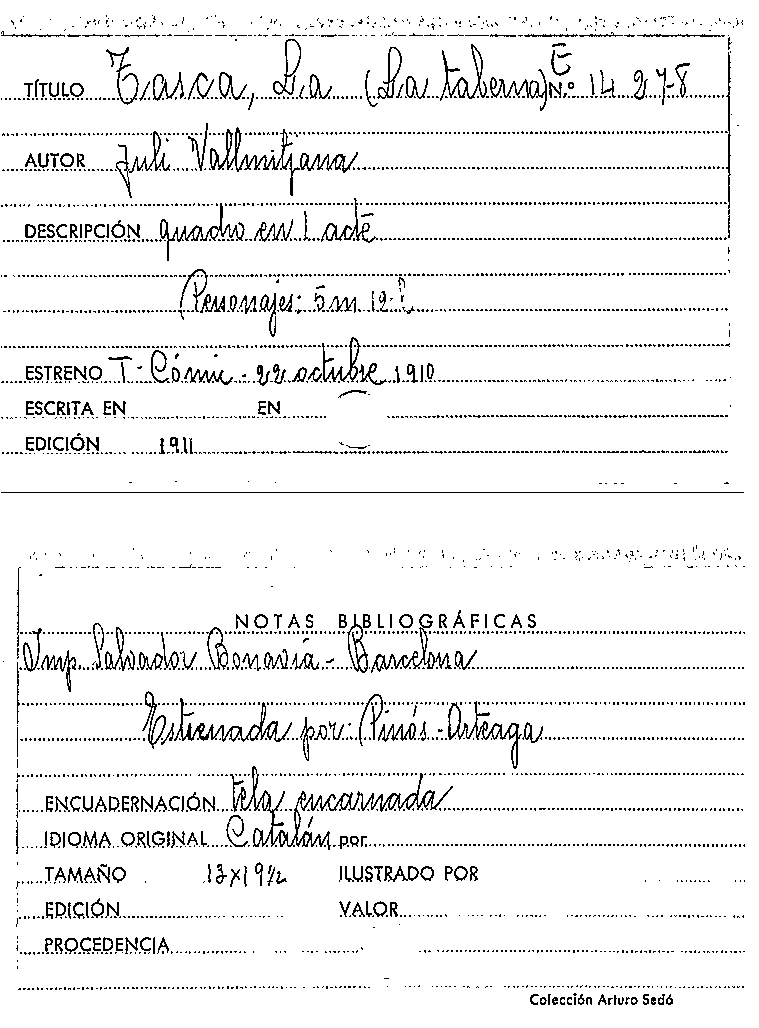 TÍTULO Tasca, La (La taberna) E N.º 14 27-8
AUTOR Juli Vallmitjana
DESCRIPCIÓN quadro en 1 acte
Personajes: 5 m 12
ESTRENO T- Cómic - 22 octubre 1910
ESCRITA EN EN
EDICIÓN 1911
NOTAS BIBLIOGRÁFICAS
Imp. Salvador Bonavia - Barcelona
Estrenada por: Pinós - Arteaga
ENCUADERNACIÓN tela encarnada
IDIOMA ORIGINAL Catalán por
TAMAÑO 13x19½ ILUSTRADO POR
EDICIÓN VALOR
PROCEDENCIA
Colección Arturo Sedó